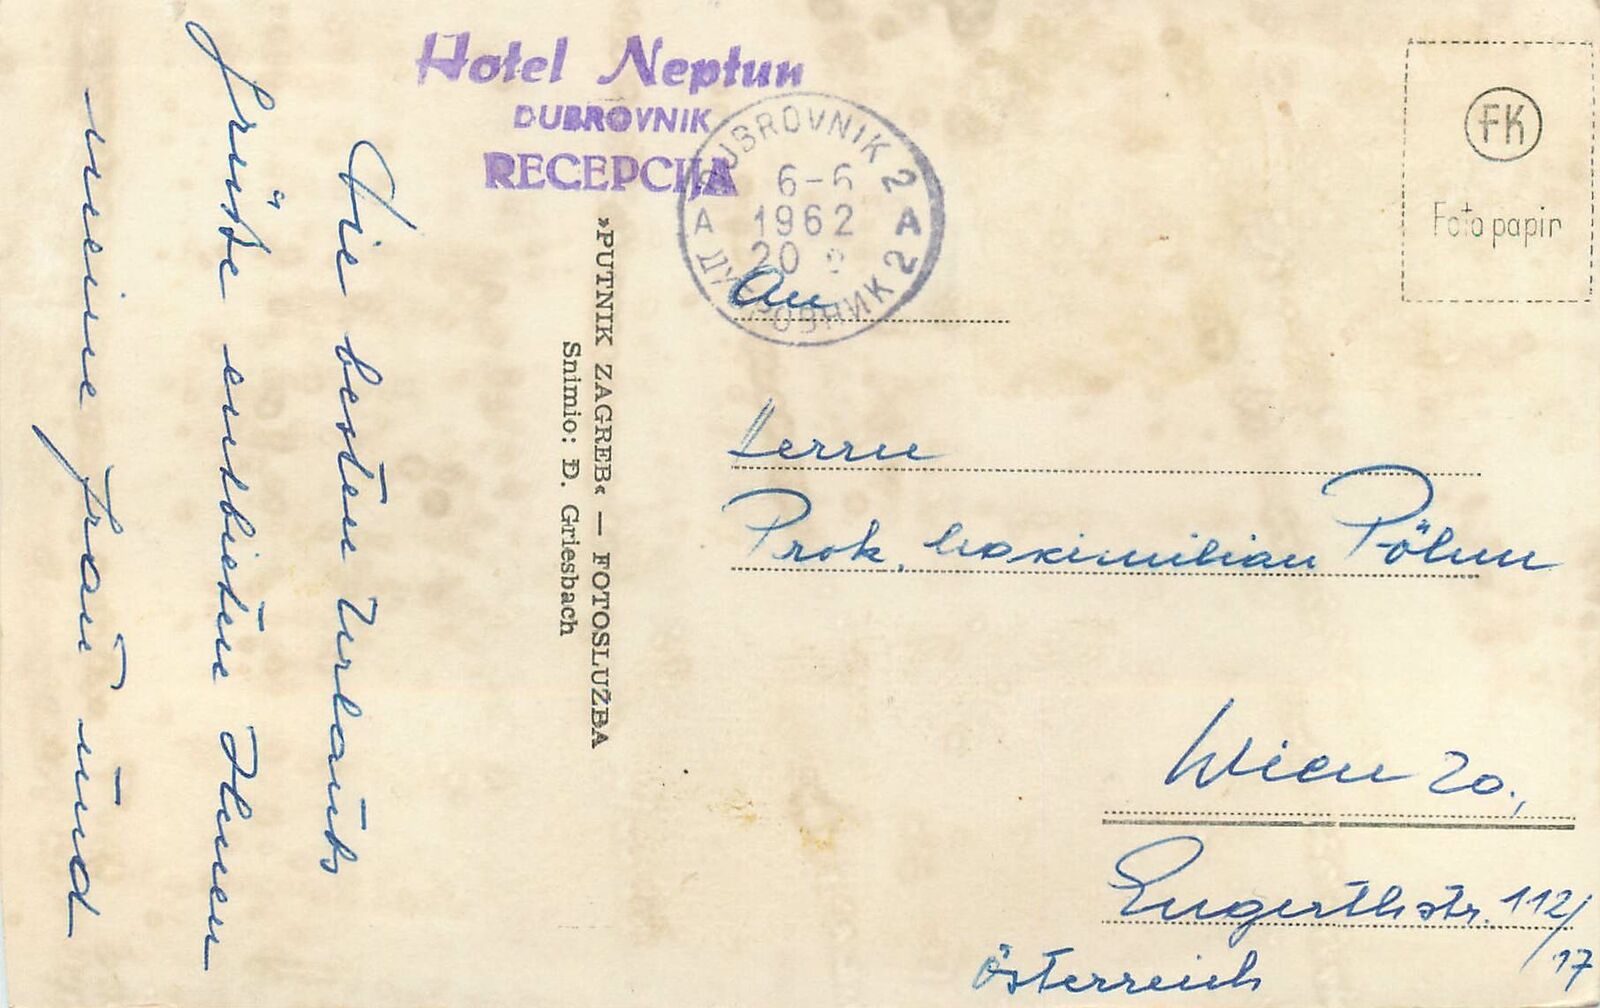 Hotel Neptun
DUBROVNIK
RECEPCIJA
DUBROVNIK 2
6-6
1962
20
A A
ДУБРОВНИК 2
FK
Foto papir
Die besten Urlaubs
grüße entbieten Ihnen
meine Frau und
»PUTNIK ZAGREB« — FOTOSLUŽBA
Snimio: Đ. Griesbach
An
Herrn
Prok. Maximilian Pöhm
Wien 20.,
Engerthstr. 112/
17
Österreich